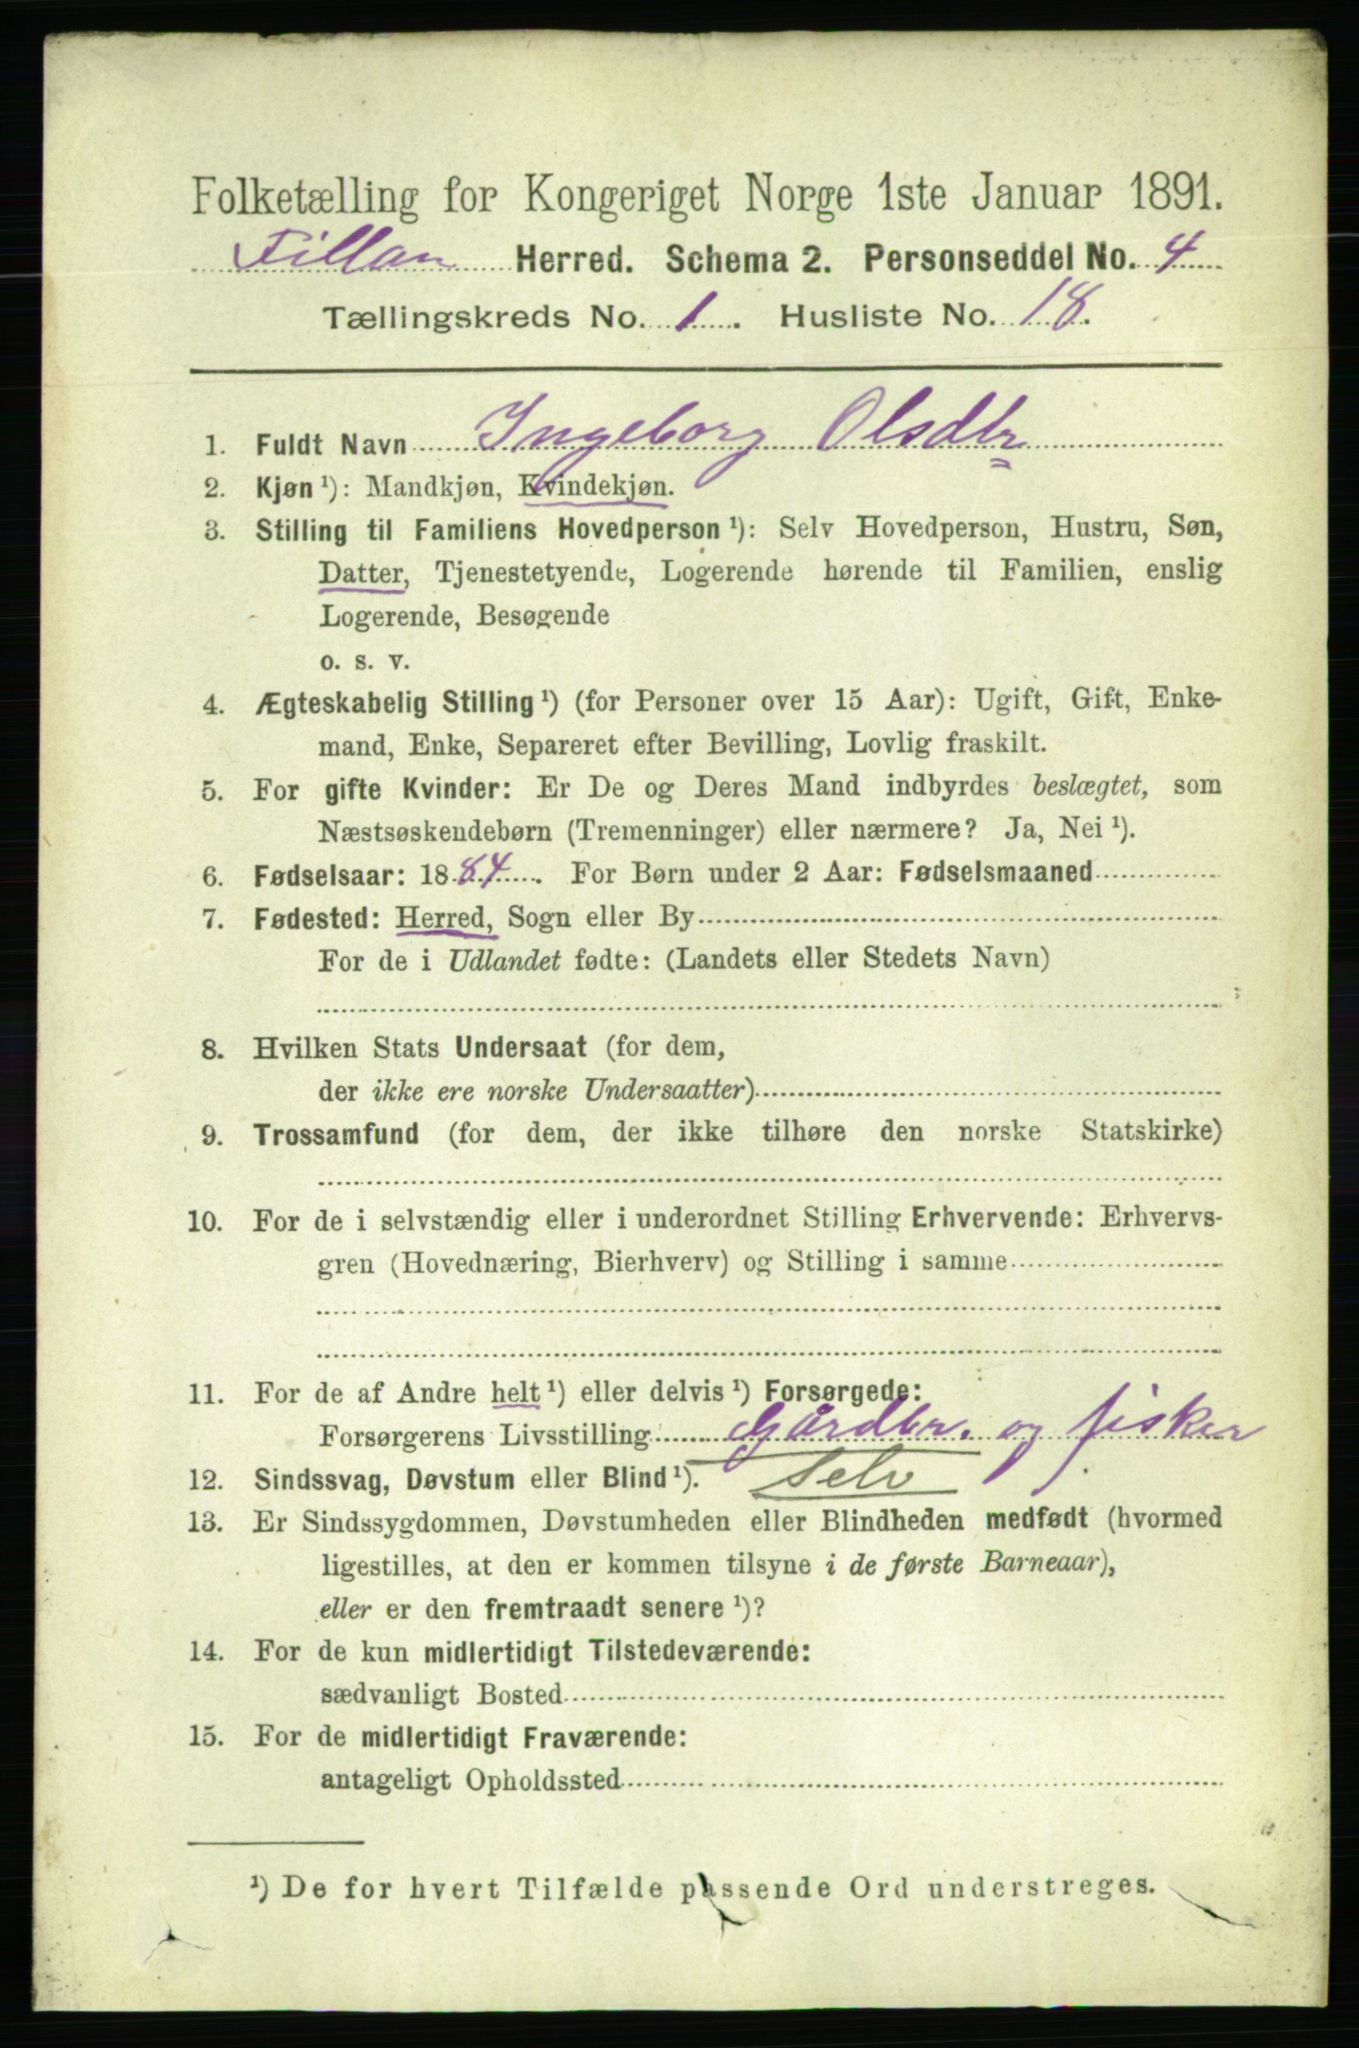 Folketælling for Kongeriget Norge 1ste Januar 1891.
Fillan Herred. Schema 2. Personseddel No. 4
Tællingskreds No. 1. Husliste No. 18.
1. Fuldt Navn Ingeborg Olsdtr
2. Kjøn ¹): Mandkjøn, Kvindekjøn.
3. Stilling til Familiens Hovedperson ¹): Selv Hovedperson, Hustru, Søn,
Datter, Tjenestetyende, Logerende hørende til Familien, enslig
Logerende, Besøgende
o. s. v.
4. Ægteskabelig Stilling ¹) (for Personer over 15 Aar): Ugift, Gift, Enke-
mand, Enke, Separeret efter Bevilling, Lovlig fraskilt.
5. For gifte Kvinder: Er De og Deres Mand indbyrdes beslægtet, som
Næstsøskendebørn (Tremenninger) eller nærmere? Ja, Nei ¹).
6. Fødselsaar: 1884. For Børn under 2 Aar: Fødselsmaaned
7. Fødested: Herred, Sogn eller By
For de i Udlandet fødte: (Landets eller Stedets Navn)
8. Hvilken Stats Undersaat (for dem,
der ikke ere norske Undersaatter)
9. Trossamfund (for dem, der ikke tilhøre den norske Statskirke)
10. For de i selvstændig eller i underordnet Stilling Erhvervende: Erhvervs-
gren (Hovednæring, Bierhverv) og Stilling i samme
11. For de af Andre helt ¹) eller delvis ¹) Forsørgede:
Forsørgerens Livsstilling Gårdbr. og fisker
12. Sindssvag, Døvstum eller Blind ¹). Selv
13. Er Sindssygdommen, Døvstumheden eller Blindheden medfødt (hvormed
ligestilles, at den er kommen tilsyne i de første Barneaar),
eller er den fremtraadt senere ¹)?
14. For de kun midlertidigt Tilstedeværende:
sædvanligt Bosted
15. For de midlertidigt Fraværende:
antageligt Opholdssted
¹) De for hvert Tilfælde passende Ord understreges.